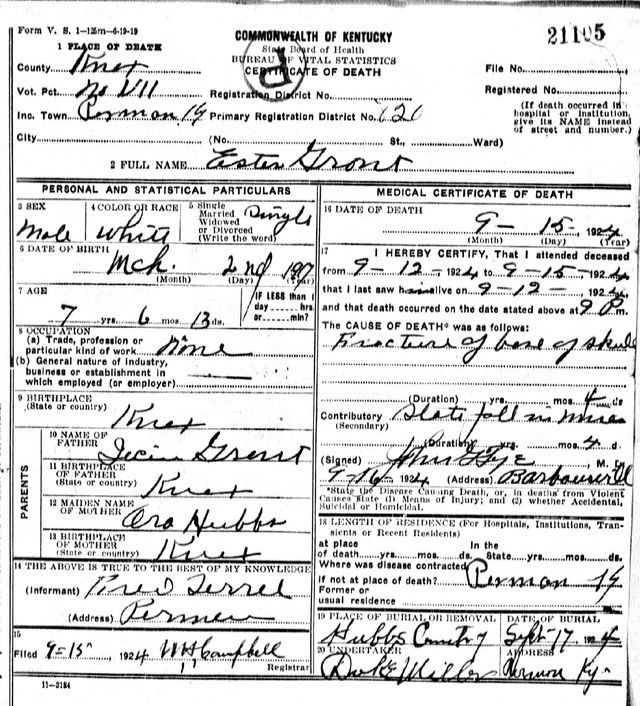 Form V. S. 1—125m—6-19-19
COMMONWEALTH OF KENTUCKY
State Board of Health
BUREAU OF VITAL STATISTICS
CERTIFICATE OF DEATH
D
21105
1 PLACE OF DEATH
County Knox
Vot. Pct. No VII
Inc. Town Permon Ky
City
Registration District No.
Primary Registration District No. 120
(No. St., Ward)
File No.
Registered No.
(If death occurred in
hospital or institution,
give its NAME instead
of street and number.)
2 FULL NAME Ester Grant
PERSONAL AND STATISTICAL PARTICULARS
3 SEX
Male
4 COLOR OR RACE
White
5 Single
Married
Widowed
or Divorced
(Write the word)
Single
6 DATE OF BIRTH
Mch. 2nd 1917
(Month) (Day) (Year)
7 AGE
7 yrs. 6 mos. 13 ds.
IF LESS than 1
day hrs.
or min?
8 OCCUPATION
(a) Trade, profession or
particular kind of work None
(b) General nature of industry,
business or establishment in
which employed (or employer)
9 BIRTHPLACE
(State or country)
Knox
PARENTS
10 NAME OF
FATHER
Grant
11 BIRTHPLACE
OF FATHER
(State or country)
Knox
12 MAIDEN NAME
OF MOTHER
Ora Hubbs
13 BIRTHPLACE
OF MOTHER
(State or country)
Knox
14 THE ABOVE IS TRUE TO THE BEST OF MY KNOWLEDGE
(Informant) Fred Terrel
(Address) Permon
15
Filed 9-15 1924 WH Campbell
Registrar
11—3184
MEDICAL CERTIFICATE OF DEATH
16 DATE OF DEATH
9 - 15 - , 1924
(Month) (Day) (Year)
17 I HEREBY CERTIFY, That I attended deceased
from 9-12- 1924 to 9-15- 1924
that I last saw him alive on 9-12- 1924
and that death occurred on the date stated above at 9 P m.
The CAUSE OF DEATH* was as follows:
Fracture of base of skull
(Duration) yrs. mos. 4 ds
Contributory Slate fall in mines
(Secondary)
(Duration) yrs. mos. 4 d.
(Signed) M. D
9-16- 1924 (Address) Barbourvill
*State the Disease Causing Death, or, in deaths from Violent
Causes state (1) Means of Injury; and (2) whether Accidental,
Suicidal or Homicidal.
18 LENGTH OF RESIDENCE (For Hospitals, Institutions, Tran-
sients or Recent Residents)
at place In the
of death yrs. mos. ds. State yrs. mos. ds.
Where was disease contracted
if not at place of death? Permon Ky
Former or
usual residence
19 PLACE OF BURIAL OR REMOVAL
Hubbs Cemetry
DATE OF BURIAL
Sept-17 1924
20 UNDERTAKER
Duke Miller
ADDRESS
Permon Ky